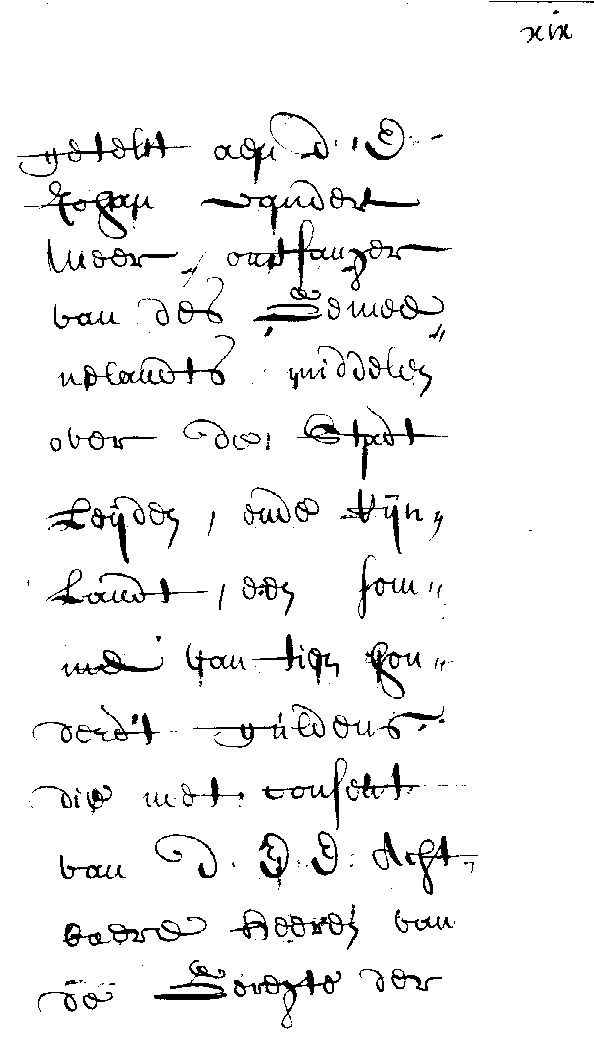 xix
getelt aen d' E.
Johan vander
Meer, ontfanger
van des Gemee„
nelandts middelen
over der Stadt
Leijden, ende Rijn„
landt, een som„
me van tien hon„
dert guldens
die met consent
van d. E. E. Acht„
baere Heeren van
de Gerechte der